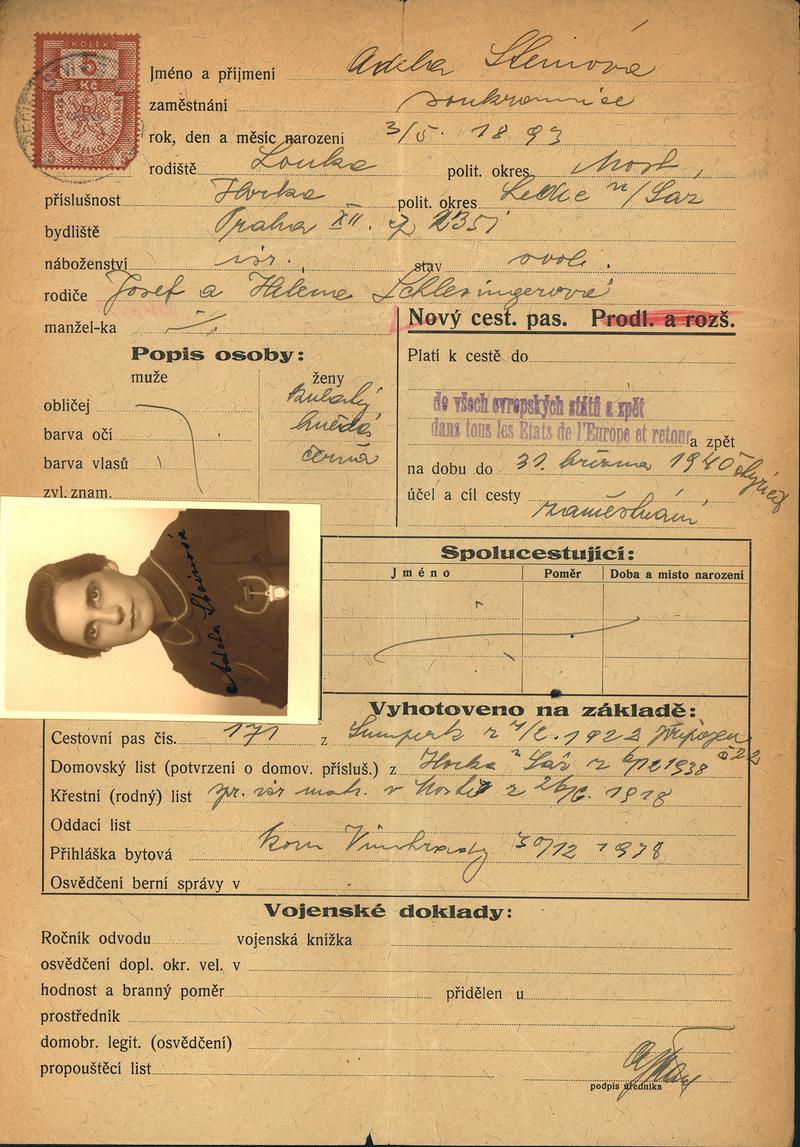 KOLEK
5
Kč
Jméno a příjmení Adela Steinová
zaměstnání soukromnice
rok, den a měsíc narození 3/5. 1893
rodiště Louka polit. okres Most,
příslušnost Horka polit. okres Ledeč n/Sáz
bydliště Praha XII.
náboženství isr. stav ovdov.
rodiče Josef a Helene Schlesingerová
manžel-ka
Nový cest. pas. Prodl. a rozš.
Popis osoby:
muže ženy
obličej kulatý
barva očí hnědé
barva vlasů černá
zvl. znam.
Platí k cestě do
do všech evropských států a zpět
dans tous les Etats de l'Europe et retour
a zpět
na dobu do 31. března 1940
účel a cíl cesty zaměstnání
Adela Steinová
Spolucestující:
Jméno Poměr Doba a místo narození
Vyhotoveno na základě:
Cestovní pas čís. 171 z Šumperk z 1922
Domovský list (potvrzení o domov. přísluš.) z Horka Sáz z 1938
Křestní (rodný) list isr. matr. v z 26/6. 1918
Oddací list
Přihláška bytová kom Vinohrady 30/12 1938
Osvědčení berní správy v
Vojenské doklady:
Ročník odvodu vojenská knížka
osvědčení dopl. okr. vel. v
hodnost a branný poměr přidělen u
prostředník
domobr. legit. (osvědčení)
propouštěcí list
podpis úředníka